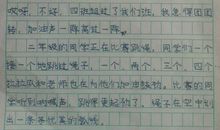 哎呀，不好，四班超过了我们班，我急得团团
转，加油声一阵高过一阵。
一年级的同学正在比赛跳绳，同学们一个
接一个地跳过绳子，一个、两个、三个、四个
拉拉队和老师也在为他们加油鼓劲。比赛的同
学听到呐喊声，跳得更起劲了。绳子在空中划
出一条条优美的弧线。